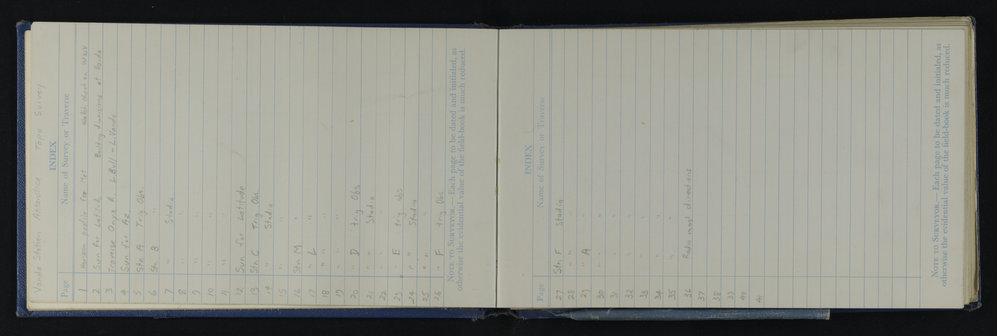 Vanda Station Antarctica Topo Survey
INDEX
Page Name of Survey or Traverse
1 Horizon profile for Met
2 Sun for Latitude Building dimensions at Vanda
3 Traverse Onyx R. L. Bull - L. Vanda
4 Sun for Az
5 Stn A Trig Obs
6 Stn B "
7 " Stadia
8 "
9 " "
10 " "
11 " "
12 Sun for Latitude
13 Stn C Trig Obs
14 " Stadia
15 " "
16 Stn M "
17 " L "
18 " "
19 " "
20 " D trig obs
21 " " Stadia
22 " "
23 " E trig obs
24 " " Stadia
25 " " "
26 " F trig obs
NOTE TO SURVEYOR.—Each page to be dated and initialed, as
otherwise the evidential value of the field-book is much reduced.
INDEX
Page Name of Survey or Traverse
27 Stn F Stadia
28 " " "
29 " A "
30 " "
31 " "
32 " "
33 " "
34 " "
35 " "
36 Radio mast dimensions
37
38
39
40
41
NOTE TO SURVEYOR.—Each page to be dated and initialed, as
otherwise the evidential value of the field-book is much reduced.